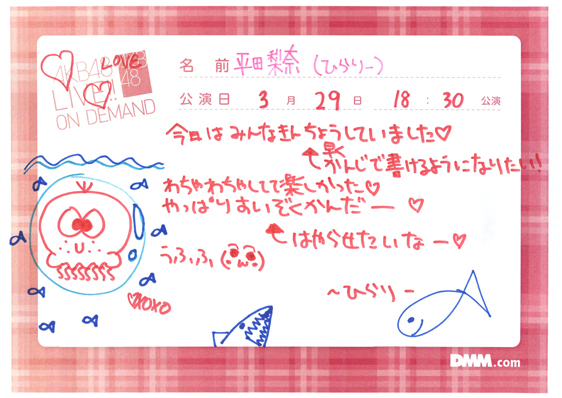 AKB48 LOVE
LIVE!!
ON DEMAND
名 前 平田梨奈 (ひらりー)
公演日 3 月 29 日 18 : 30 公演
今日はみんなきんちょうしていました♡
早く
かんじで書けるようになりたい!!
わちゃわちゃしてて楽しかった♡
やっぱりすいぞくかんだー ♡
はやらせたいなー♡
うふふ
♡xoxo
~ひらりー
DMM.com